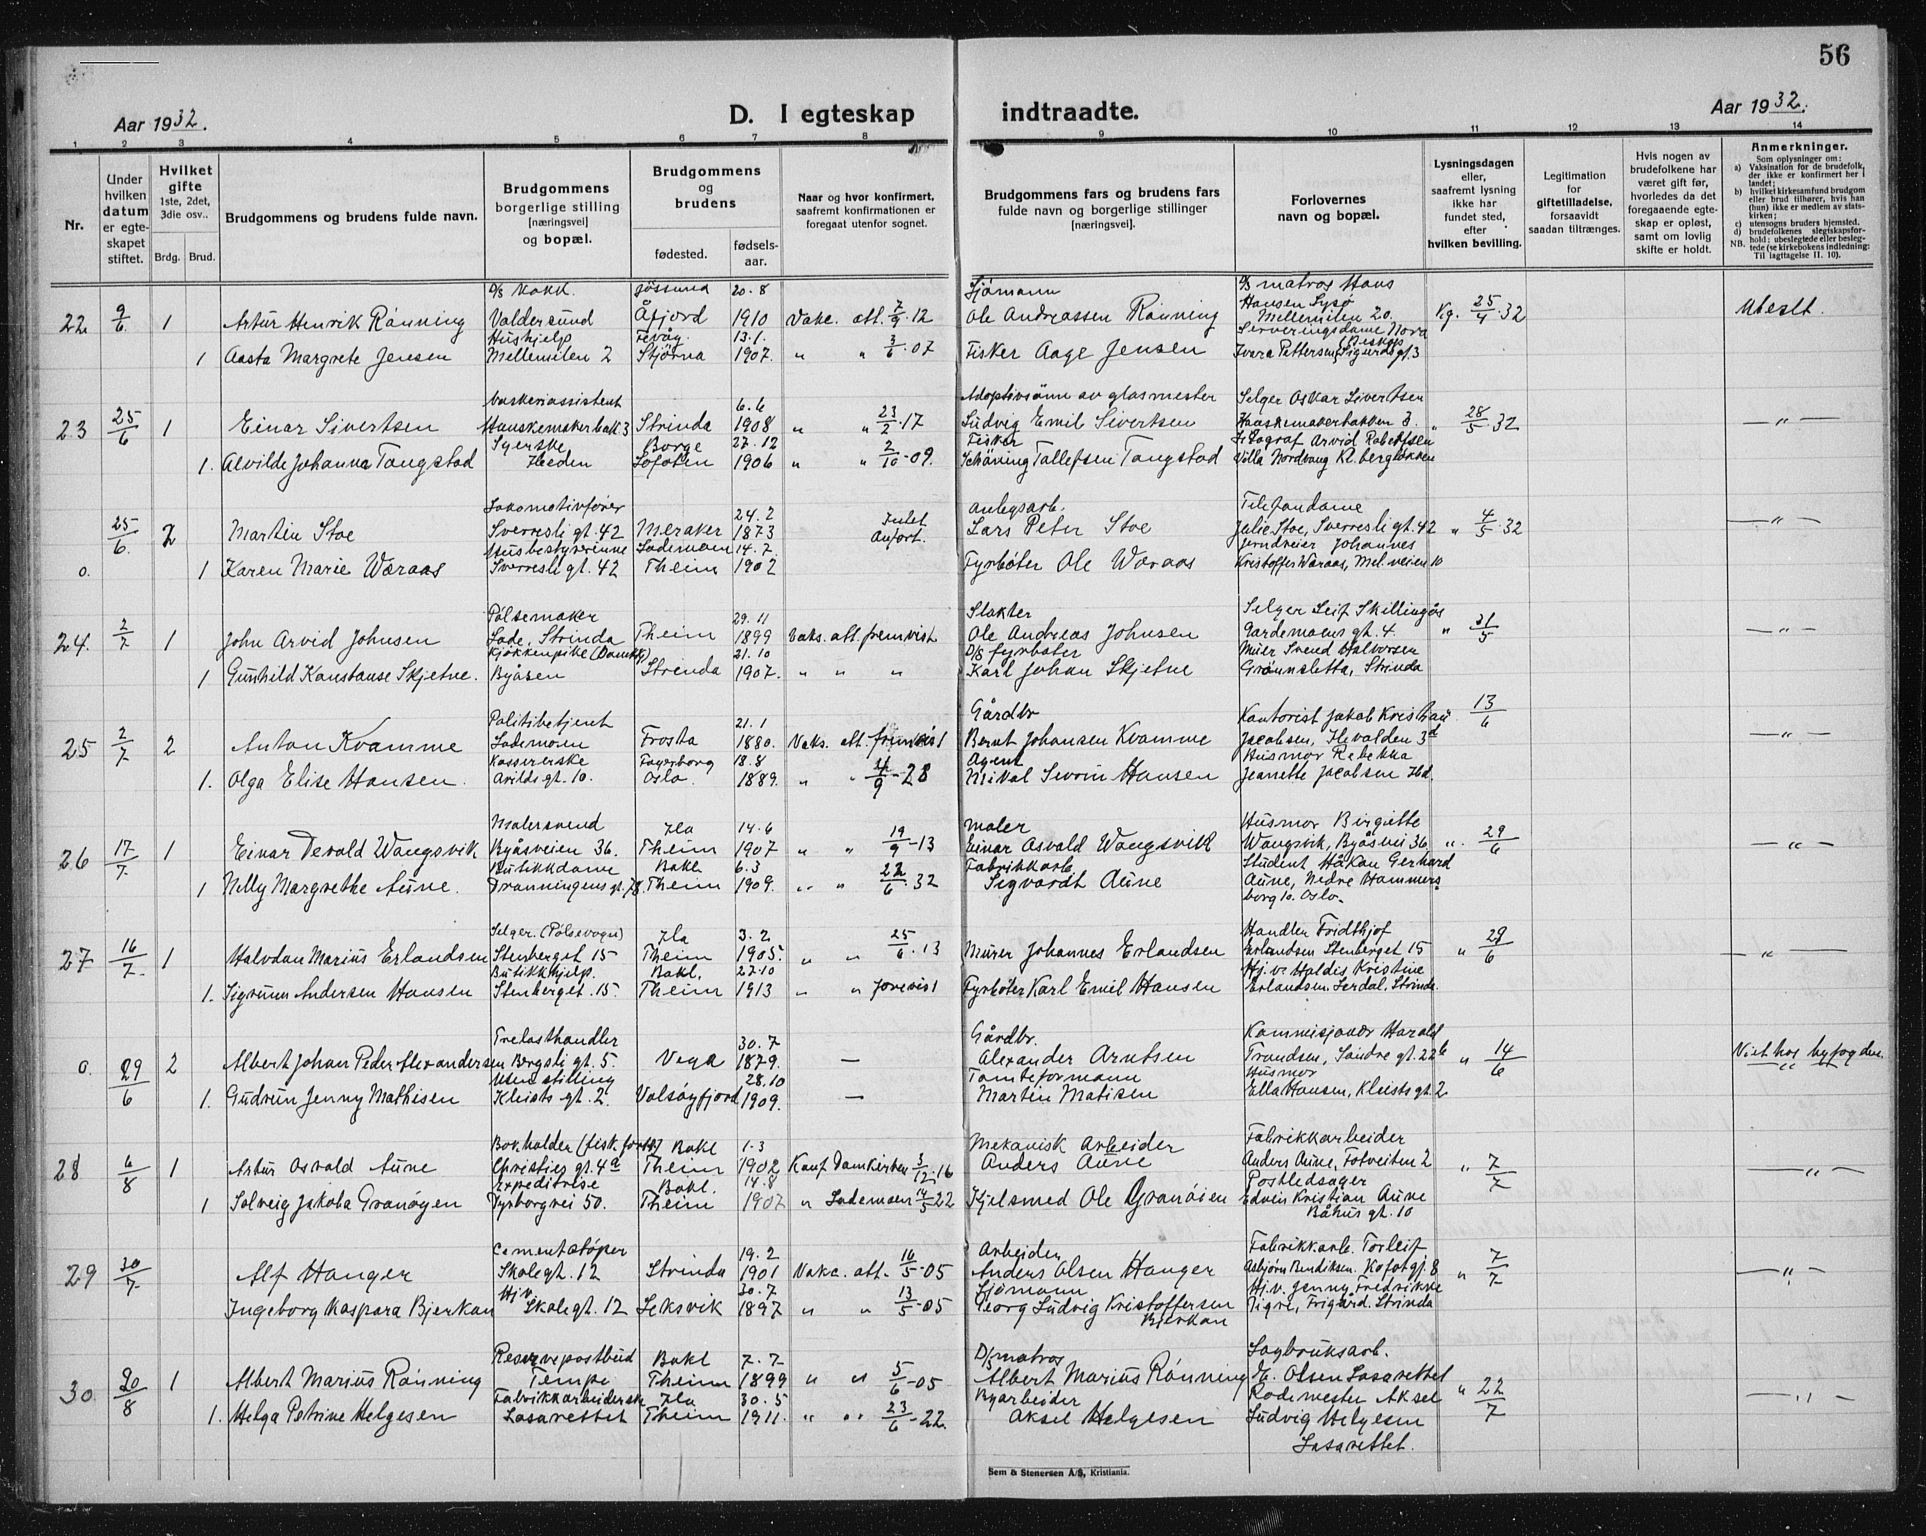 56
Aar 1932.
D. I egteskap indtraadte.
Aar 1932.
1 2 3 4 5 6 7 8 9 10 11 12 13 14
Nr.
Under hvilken datum er egteskapet stiftet.
Hvilket gifte 1ste, 2det, 3die osv..
Brdg. Brud.
Brudgommens og brudens fulde navn.
Brudgommens borgerlige stilling [næringsvei] og bopæl.
Brudgommens og brudens
fødested.
fødselsaar.
Naar og hvor konfirmert, saafremt konfirmationen er foregaat utenfor sognet.
Brudgommens fars og brudens fars fulde navn og borgerlige stillinger [næringsvei].
Forlovernes navn og bopæl.
Lysningsdagen eller, saafremt lysning ikke har fundet sted, efter hvilken bevilling.
Legitimation for giftetilladelse, forsaavidt saadan tiltrænges.
Hvis nogen av brudefolkene har været gift før, hvorledes da det foregaaende egteskap er opløst, samt om lovlig skifte er holdt.
Anmerkninger.
Som oplysninger om:
a) Vaksination for de brudefolk, der ikke er konfirmert her i landet;
b) hvilket kirkesamfund brudgom eller brud tilhører, hvis han (hun) ikke er medlem av statskirken;
c) utensogns bruders hjemsted.
d) brudefolkenes slegtskapsforhold: ubeslegtede eller beslegtede (se kirkebokens indledning:
NB. Til iagttagelse II. 10).
D/S kokk Jøssund 20-8 Sjømann D/S matros Hans
22 9/6 1 Artur Henrik Rønning Valdersund Åfjord 1910 Vakc. att. 7/9-12 Ole Andreassen Rønning Hansen Sysø Mellemilen 20. Kg. 25/4-32 Ubeslt.
Hushjelp Fevåg 13.1. Serveringsdame Nora
1 Aasta Margrete Jensen Mellemilen 2 Stjørna 1907. " " 3/6-07 Fisker Aage Jensen Ivara Pettersen, Sigurds gt. 3
Vaskeriassistent 6.6 Adoptivsønn av glasmester Selger Oskar Sivertsen
23 25/6 1 Einar Sivertsen Hanskemakerbak. 3 Strinda 1908 " " 23/2-17 Ludvig Emil Sivertsen Hanskemakerbakken 3. " 28/5-32 — " —
Syerske Borge 27.12 Fisker Litograf Arvid Robertsen
1. Alvilde Johanna Tangstad Heden Lofoten 1906 " " 2/10-09. Schøning Tollefsen Tangstad Villa Nordvang Kl. bergløkken
Lokomotivfører 24.2 anlegsarb. Telefondame
25/6 2 Martin Stoe Sverresli gt. 42 Meraker 1873 Intet Anført. Lars Peter Stoe Julie Stoe, Sverresli gt. 42 " 4/5-32 — " —
Husbestyrerinne Lademoen 14.7. Jerndreier Johannes
o. 1 Karen Marie Waraas Sverresli gt. 42 Theim 1902 Fyrbøter Ole Waraas Kristoffer Waraas, Mel.veien 10
Pølsemaker 29.11 Slakter Selger Leif Skillingås
24. 2/7 1 John Arvid Johnsen Lade, Strinda Theim 1899 Vaks. att. fremvist Ole Andreas Johnsen Gardemoens gt. 4. " 31/5 — " —
Kjøkkenpike 21.10 D/S fyrbøter Murer Svend Halvorsen
1 Gunhild Konstanse Skjetne. Byåsen Strinda 1907. " " " Karl Johan Skjetne Grønnsletta, Strinda
Politibetjent 21.1 Gårdbr Kontorist Jakob Kristian
25 2/7 2 Anton Kvamme Lademoen Frosta 1880. Vaks. att. fremvist Bernt Johansen Kvamme Jacobsen, Ilevolden 3d 13/6 — " —
Kassererske Fagerborg 18.8 Agent Husmor Rebekka
1. Olga Elise Hansen. Arilds gt. 10. Oslo. 1889. " " 4/9-28 Nikol Severin Hansen Jeanette Jacobsen Ibd.
Malersvend Ila 14.6 maler Husmor Birgitte
26 17/7. 1 Einar Devold Wangsvik Byåsveien 36. Theim 1907 " " 19/9-13 Einar Osvald Wangsvik Wangsvik, Byåsvei 36, " 29/6 — " —
Butikkdame Bakl. 6.3 Fabrikkarb. Student Håkon Gerhard
1 Nelly Margrethe Aune. Dronningens gt. 78 Theim 1909. " " 22/6-32 Sigvardt Aune Aune, Nedre Hammersborg 10. Oslo.
Selger. (Pølsevogn) Ila 3.2 Handler Fridthjof
27 16/7. 1 Halvdan Marius Erlandsen Stenberget 15 Theim 1905. " " 25/6-13 Murer Johannes Erlandsen Erlandsen Stenberget 15 " 29/6 — " —
Butikkhjelp. Bakl. 27.10 Hj.v. Haldis Kristine
1. Sigrunn Andersen Hansen Stenberget 15. Theim 1913 " " forevist Fyrbøter Karl Emil Hansen Erlandsen, Lerdal, Strinda.
Trelasthandler 30.7 Gårdbr. Kommisjonær Harald
o. 29/6 2 Albert Johan Peder Alexandersen Bergsli gt. 5. Vega 1879. — Alexander Arntsen Trondsen, Søndre gt. 22b " 14/6 Viet hos byfogden.
Uten stilling 28.10 Tomteformann Husmor
1. Gudrun Jenny Mathisen Kleists gt. 2. Valsøyfjord 1909. — Martin Matisen Ella Hansen, Kleists gt. 2
Bokholder Bakl 1.3 Mekanisk arbeider Fabrikkarbeider
28 6/8 1 Artur Osvald Aune Christies gt. 4a Theim 1902 Konf Domkirken 3/12-16 Anders Aune Anders Aune, Tolveiten 2 " 7/7 — " —
Expeditrise Bakl. 14.8 Postledsager
1 Solveig Jakoba Granøyen Tyborgvei 50. Theim 1907 " Lademoen 14/5-22 Hjelsmed Ole Granøien Edvin Kristian Aune Båhus gt. 10
Cementstøper 19.2 Arbeider Fabrikkarb. Torleif
29 30/7 Alf Hanger Skolegt. 12 Strinda 1901 Vakc. att. 16/5-05 Anders Olsen Hanger Asbjørn Bendiksen. Kofotgt. 8 " 7/7 — " —
Hj.v. 30.7 Sjømann Hj.v. Jenny Fredrikke
Ingeborg Kaspara Bjerkan Skolegt. 12 Leksvik 1897 " " 13/5-05 Georg Ludvig Kristoffersen Bjerkan Frigård. Strinda
Reservepostbud Bakl 7.7 D/S matros Sagbruksarb.
30. 20/8 1 Albert Marius Rønning Tempe Theim 1899 " " 5/6-05 Albert Marius Rønning Olsen Lasarettet " 22/7 — " —
Fabrikkarbeiderske Ila 30.5 Byarbeider Rodemester Aksel
1. Helga Petrine Helgesen Lasarettet Theim 1911. " " 23/6-22. Aksel Helgesen Ludvig Helgesen
Lasarettet.
Sem & Stenersen A/S, Kristiania.